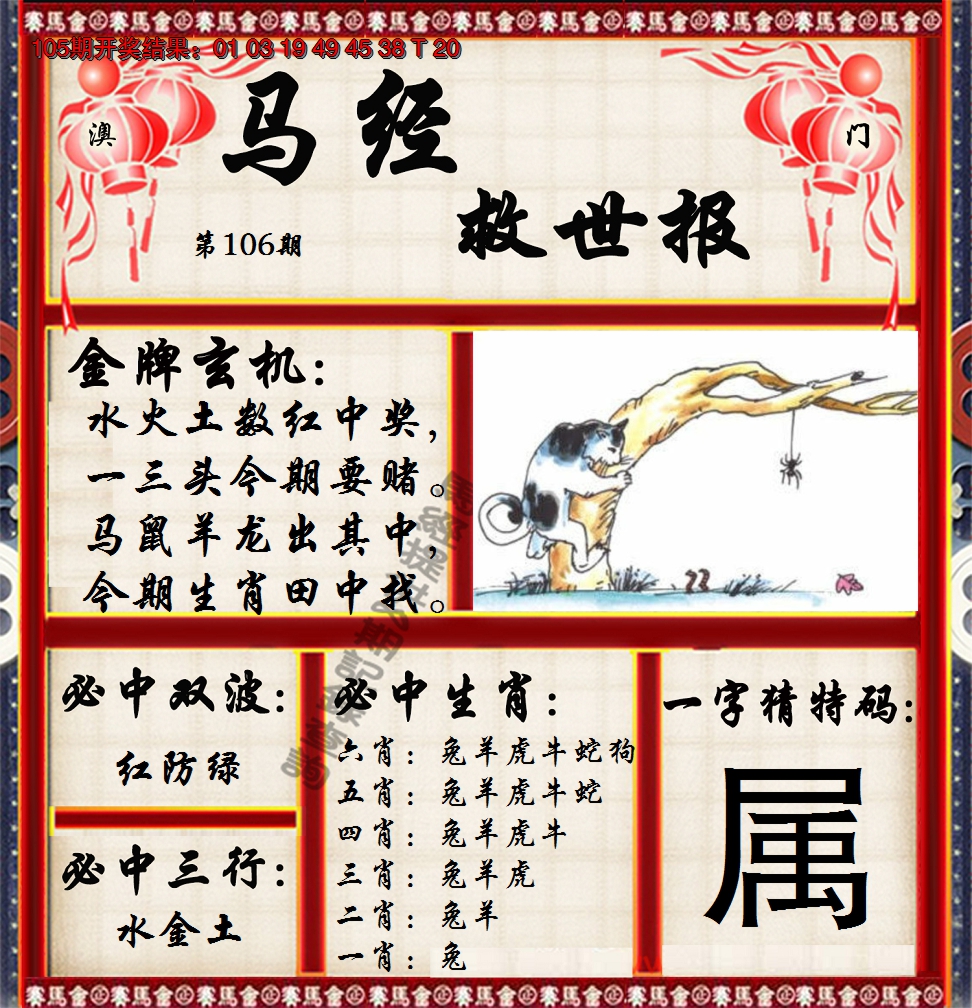 105期开奖结果：01 03 19 49 45 38 T 20
澳
门
马经
救世报
第106期
金牌玄机：
水火土数红中奖，
一三头今期要赌。
马鼠羊龙出其中，
今期生肖田中找。
必中双波：
红防绿
必中三行：
水金土
必中生肖：
六肖：兔羊虎牛蛇狗
五肖：兔羊虎牛蛇
四肖：兔羊虎牛
三肖：兔羊虎
二肖：兔羊
一肖：兔
一字猜特码：
属